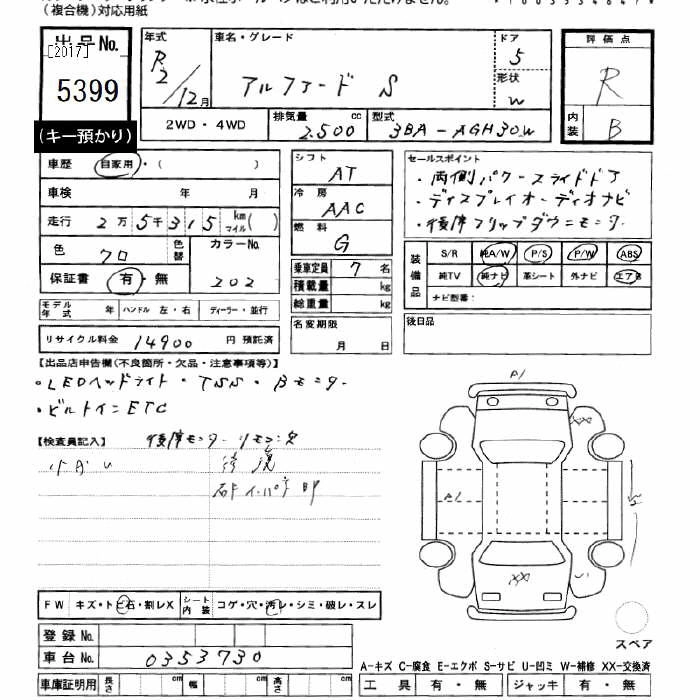 (複合機)対応用紙
出品No.
[2017]
5399
(キー預かり)
年式
R2/12月
車名・グレード
アルファード S
ドア
5
形状
W
評価点
R
内装
B
2WD・4WD
排気量
2.500 cc
型式
3BA-AGH30W
車歴 自家用・( )
車検 年 月
走行 2万5千315 km マイル( )
色 クロ 色替
カラーNo. 202
保証書 有・無
シフト
AT
冷房
AAC
燃料
G
乗車定員 7名
積載量 kg
総重量 kg
名変期限
月 日
セールスポイント
・両側パワースライドドア
・ディスプレイオーディオナビ
・後席フリップダウンモニター
装備品
S/R 純A/W P/S P/W ABS
純TV 純ナビ 革シート 外ナビ エアB
ナビ型番:
後日品
モデル年式 年 ハンドル 左・右 ディーラー・並行
リサイクル料金 14900 円 預託済
【出品店申告欄(不良箇所・欠品・注意事項等)】
・LEDヘッドライト・TSS・Bモニター
・ビルトインETC
【検査員記入】
後席モニターリモコン欠
小かい
修復
FW キズ・トビ石・割レX
シート内装 コゲ・穴・汚レ・シミ・破レ・スレ
登録No.
車台No. 0353730
車庫証明用 長さ cm 幅 cm 高さ cm
A1
A1
XX
スペア
A-キズ C-腐食 E-エクボ S-サビ U-凹ミ W-補修 XX-交換済
工具 有・無 ジャッキ 有・無